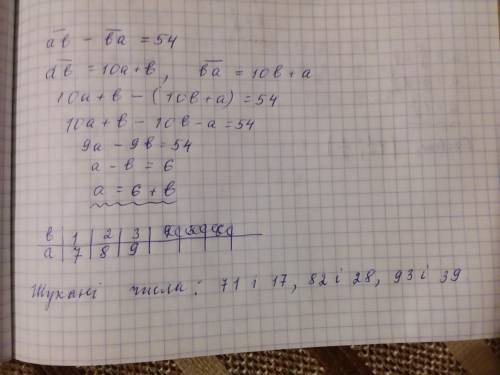 ab̅ - ba̅ = 54
ab̅ = 10a+b, ba̅ = 10b+a
10a+b - (10b+a) = 54
10a+b - 10b - a = 54
9a - 9b = 54
a - b = 6
a = 6 + b
b | 1 | 2 | 3
a | 7 | 8 | 9
Шукані числа: 71 і 17, 82 і 28, 93 і 39